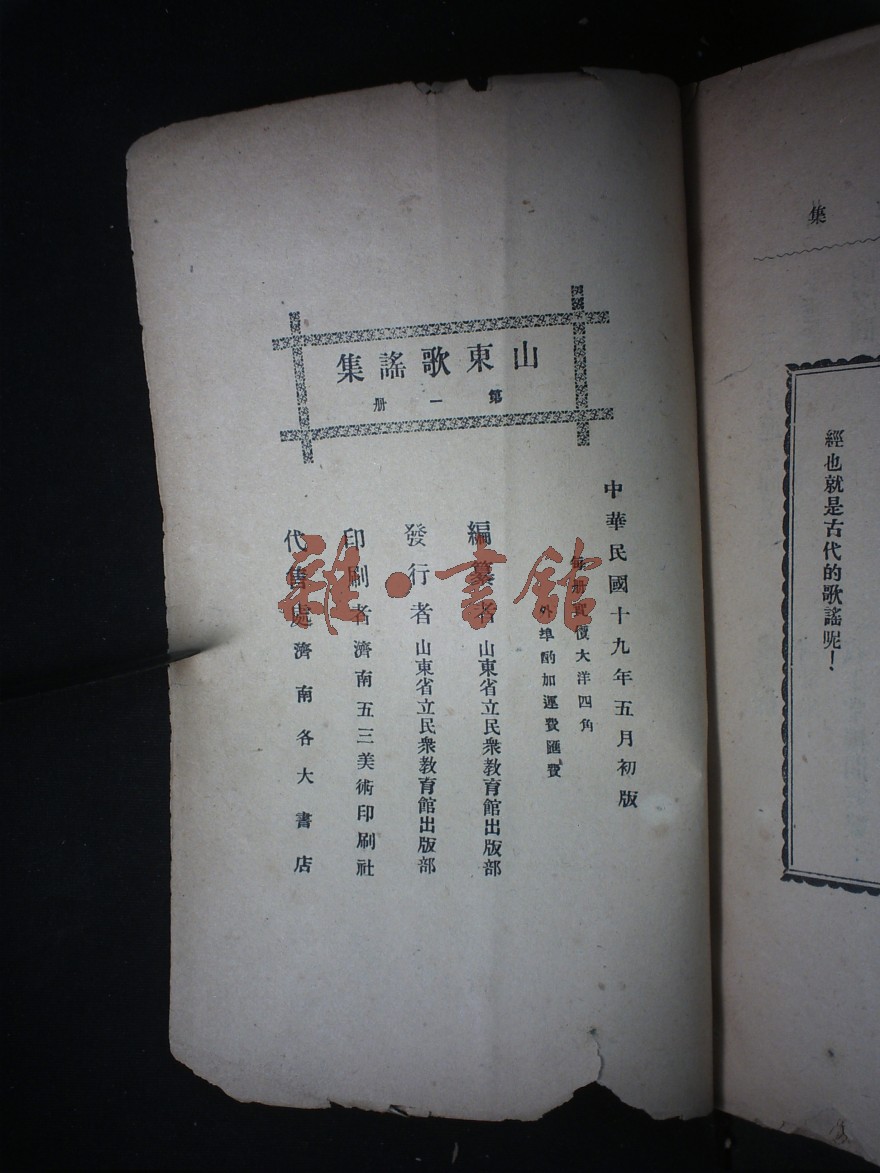 山東歌謠集
第一册
中華民國十九年五月初版
每册實價大洋四角
外埠酌加運費匯費
編纂者 山東省立民衆教育館出版部
發行者 山東省立民衆教育館出版部
印刷者 濟南五三美術印刷社
代售處 濟南各大書店
雜·書館
集
經也就是古代的歌謠呢！